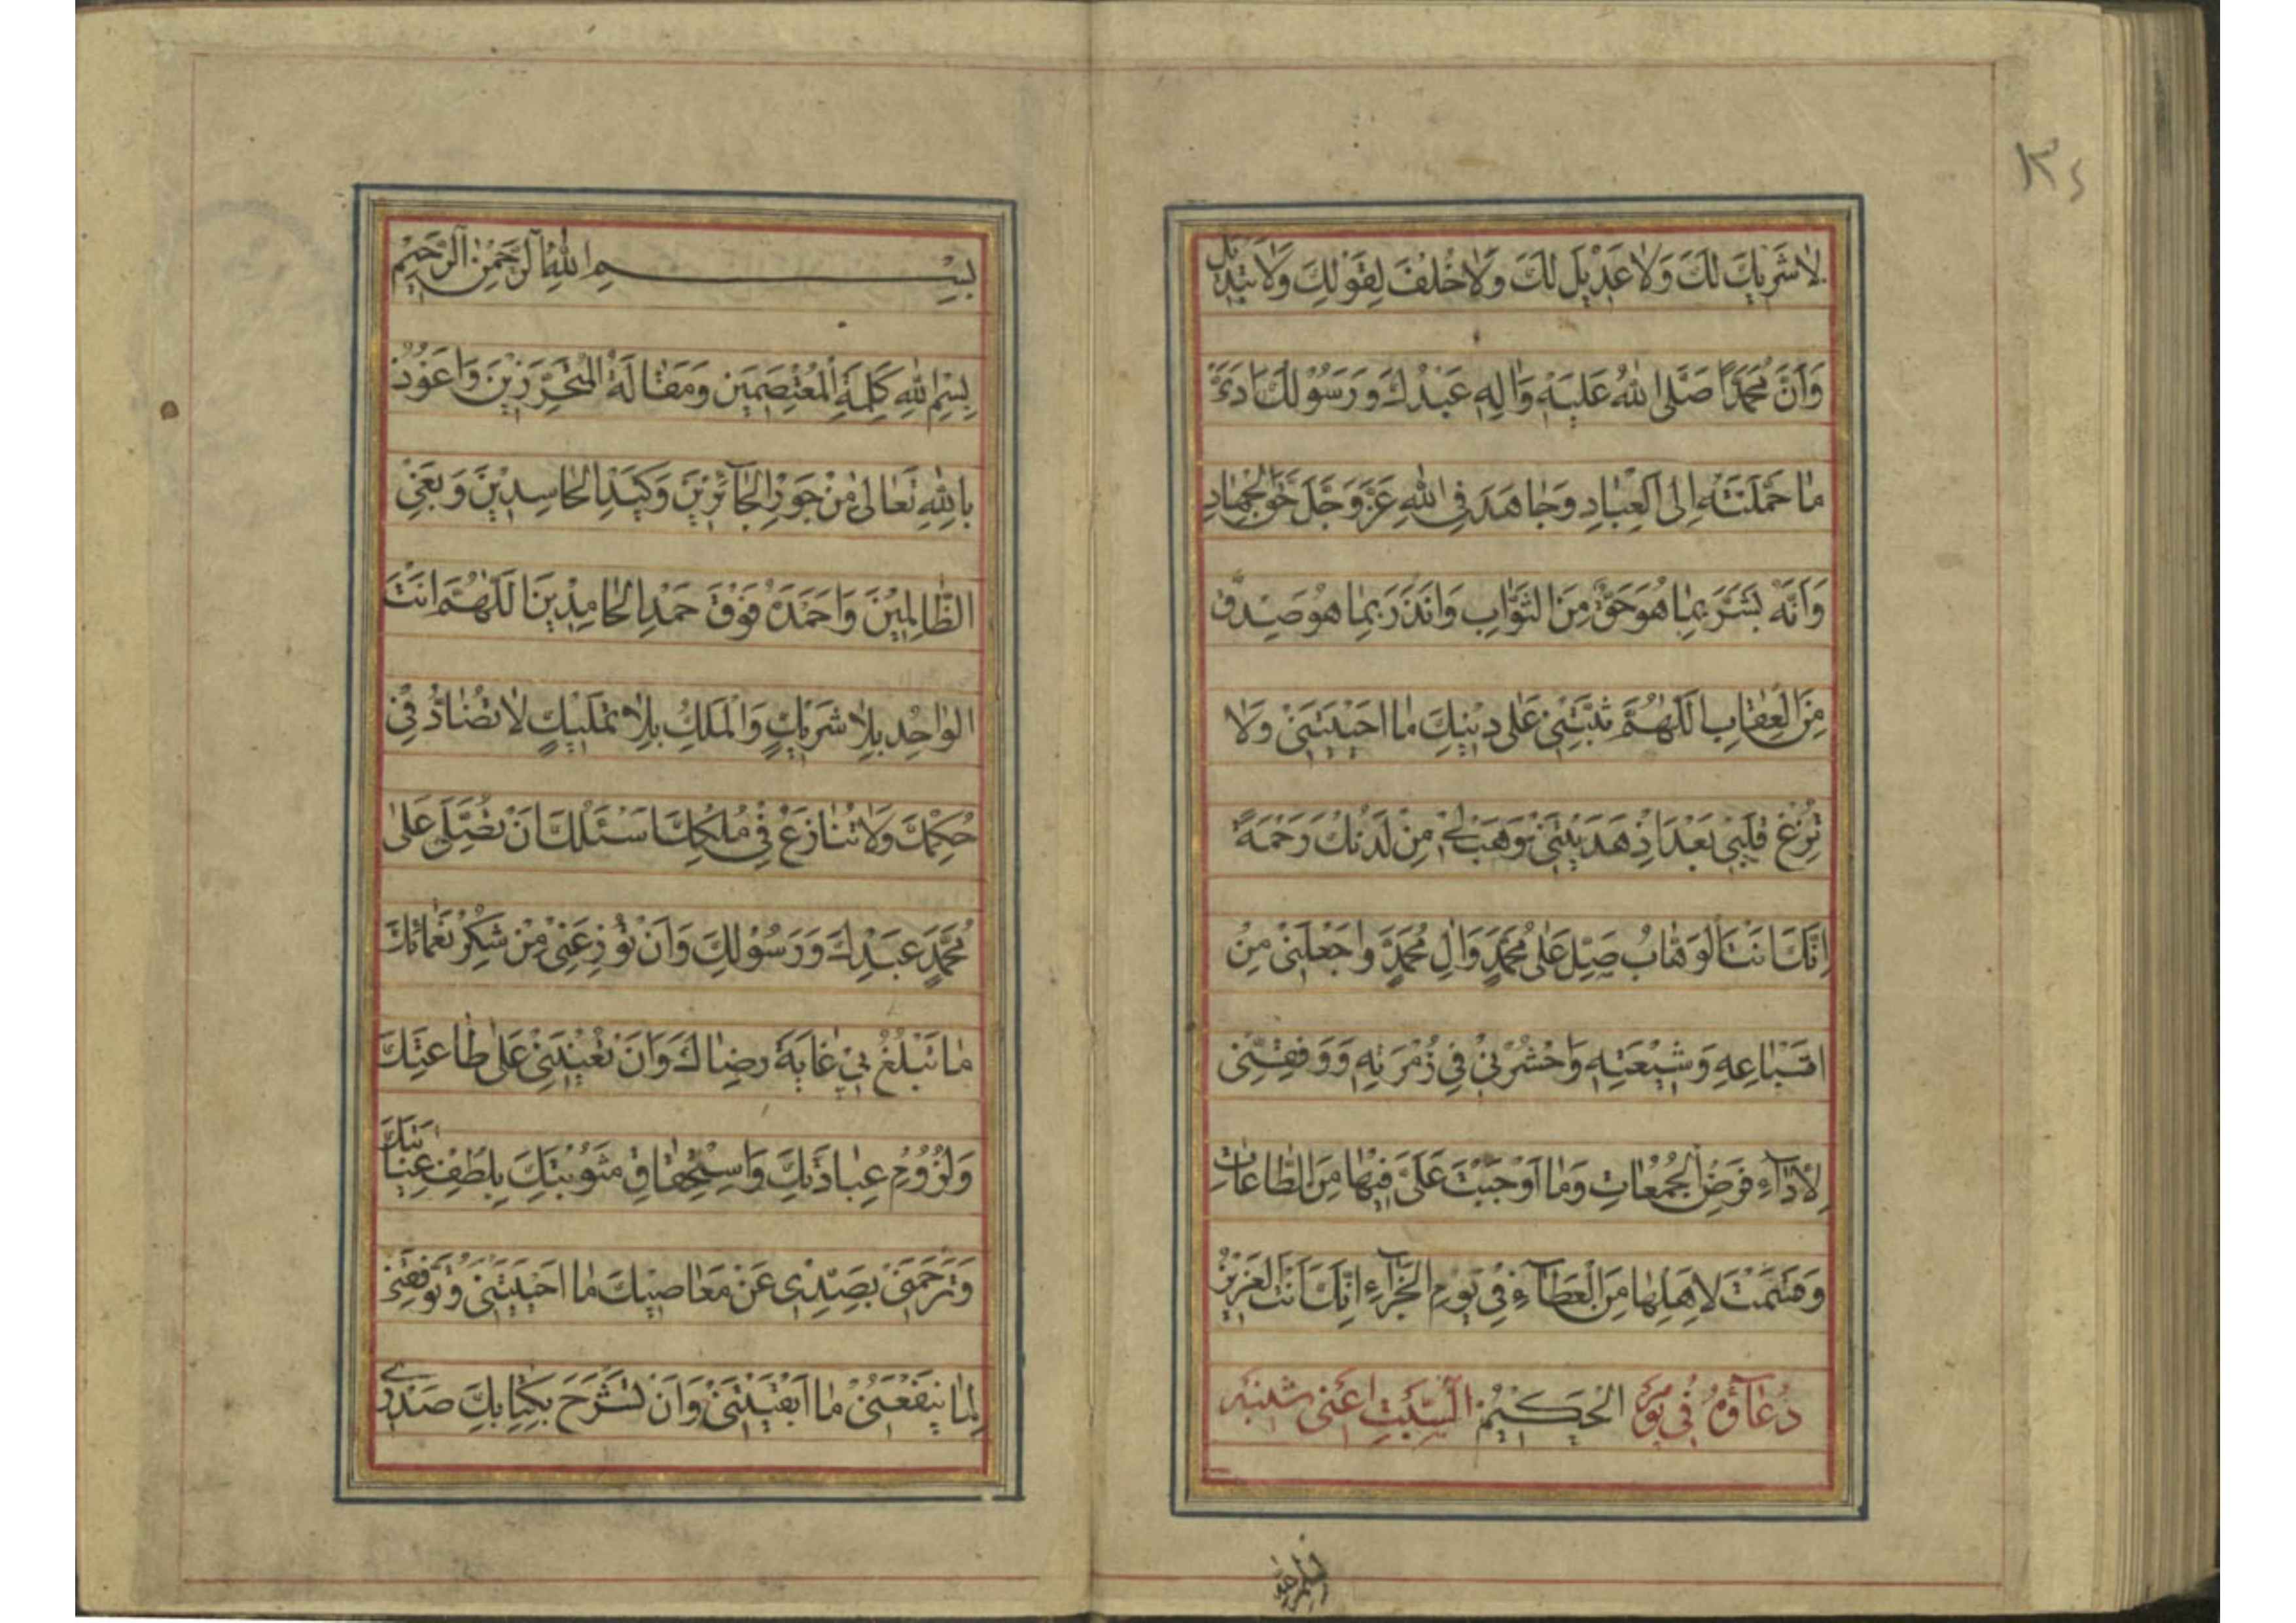 ١٣٤
لَا شَرِيكَ لَكَ وَلَا عَدِيْلَ لَكَ وَلَا خُلْفَ لِقَوْلِكَ وَلَا تَبْدِيلَ
وَاَنَّ مُحَمَّدًا صَلَّى اللهُ عَلَيْهِ وَاٰلِهِ عَبْدُكَ وَرَسُوْلُكَ اَدّٰى
مَا حَمَّلْتَهُ اِلَى الْعِبَادِ وَجَاهَدَ فِي اللهِ عَزَّ وَجَلَّ حَقَّ الْجِهَادِ
وَاَنَّهُ بَشَّرَ بِمَا هُوَ حَقٌّ مِنَ الثَّوَابِ وَاَنْذَرَ بِمَا هُوَ صِدْقٌ
مِنَ الْعِقَابِ اَللّٰهُمَّ ثَبِّتْنِيْ عَلٰى دِيْنِكَ مَا اَحْيَيْتَنِيْ وَلَا
تُزِغْ قَلْبِيْ بَعْدَ اِذْ هَدَيْتَنِيْ وَهَبْ لِيْ مِنْ لَدُنْكَ رَحْمَةً
اِنَّكَ اَنْتَ الْوَهَّابُ صَلِّ عَلٰى مُحَمَّدٍ وَاٰلِ مُحَمَّدٍ وَاجْعَلْنِيْ مِنْ
اَتْبَاعِهِ وَشِيْعَتِهِ وَاحْشُرْنِيْ فِيْ زُمْرَتِهِ وَوَفِّقْنِيْ
لِاَدَآءِ فَرْضِ الْجُمُعَاتِ وَمَا اَوْجَبْتَ عَلَيَّ فِيْهَا مِنَ الطَّاعَاتِ
وَقَسَمْتَ لِاَهْلِهَا مِنَ الْعَطَآءِ فِيْ يَوْمِ الْجَزَآءِ اِنَّكَ اَنْتَ الْعَزِيْزُ
دُعَآؤُهُ فِي يَوْمِ الْحَكِيْمُ السَّبْتِ اَعْنِي شنبه
بسم الله
بِسْمِ اللهِ الرَّحْمٰنِ الرَّحِيْمِ
بِسْمِ اللهِ كَلِمَةِ الْمُعْتَصِمِيْنَ وَمَقَالَةِ الْمُتَحَرِّزِيْنَ وَاَعُوْذُ
بِاللهِ تَعَالٰى مِنْ جَوْرِ الْجَآئِرِيْنَ وَكَيْدِ الْحَاسِدِيْنَ وَبَغْيِ
الظَّالِمِيْنَ وَاَحْمَدُهُ فَوْقَ حَمْدِ الْحَامِدِيْنَ اَللّٰهُمَّ اَنْتَ
الْوَاحِدُ بِلَا شَرِيْكٍ وَالْمَلِكُ بِلَا تَمْلِيْكٍ لَا تُضَادُّ فِيْ
حُكْمِكَ وَلَا تُنَازَعُ فِيْ مُلْكِكَ اَسْئَلُكَ اَنْ تُصَلِّيَ عَلٰى
مُحَمَّدٍ عَبْدِكَ وَرَسُوْلِكَ وَاَنْ تُوْزِعَنِيْ مِنْ شُكْرِ نَعْمَائِكَ
مَا تَبْلُغُ بِيْ غَايَةَ رِضَاكَ وَاَنْ تُعِيْنَنِيْ عَلٰى طَاعَتِكَ
وَلُزُوْمِ عِبَادَتِكَ وَاسْتِحْقَاقِ مَثُوْبَتِكَ بِلُطْفِ عِنَايَتِكَ
وَتَرْحَمَنِيْ بِصَدِّيْ عَنْ مَعَاصِيْكَ مَا اَحْيَيْتَنِيْ وَتُوَفِّقَنِيْ
لِمَا يَنْفَعُنِيْ مَا اَبْقَيْتَنِيْ وَاَنْ تَشْرَحَ بِكِتَابِكَ صَدْرِيْ